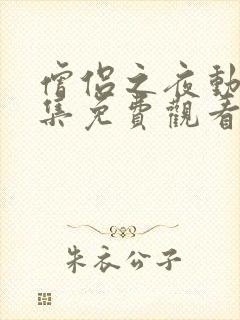 僧侶之夜動
集免費觀看
朱衣公子